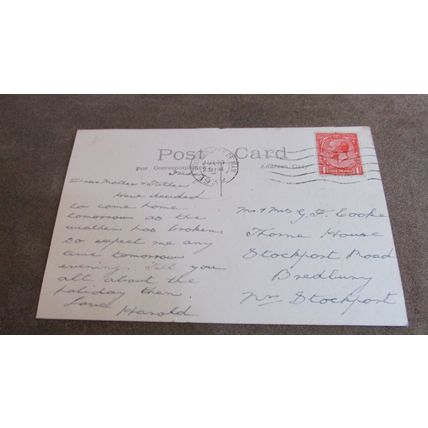 Post Card
For Correspondence
Address Only
Dear Mother & Father
Have decided
to come home
tomorrow as the
weather has broken
so expect me any
time tomorrow
evening. Tell you
all about the
holiday then.
Love
Harold
Mr & Mrs G. F. Cooke
Thorne House
Stockport Road
Bredbury
Nr Stockport